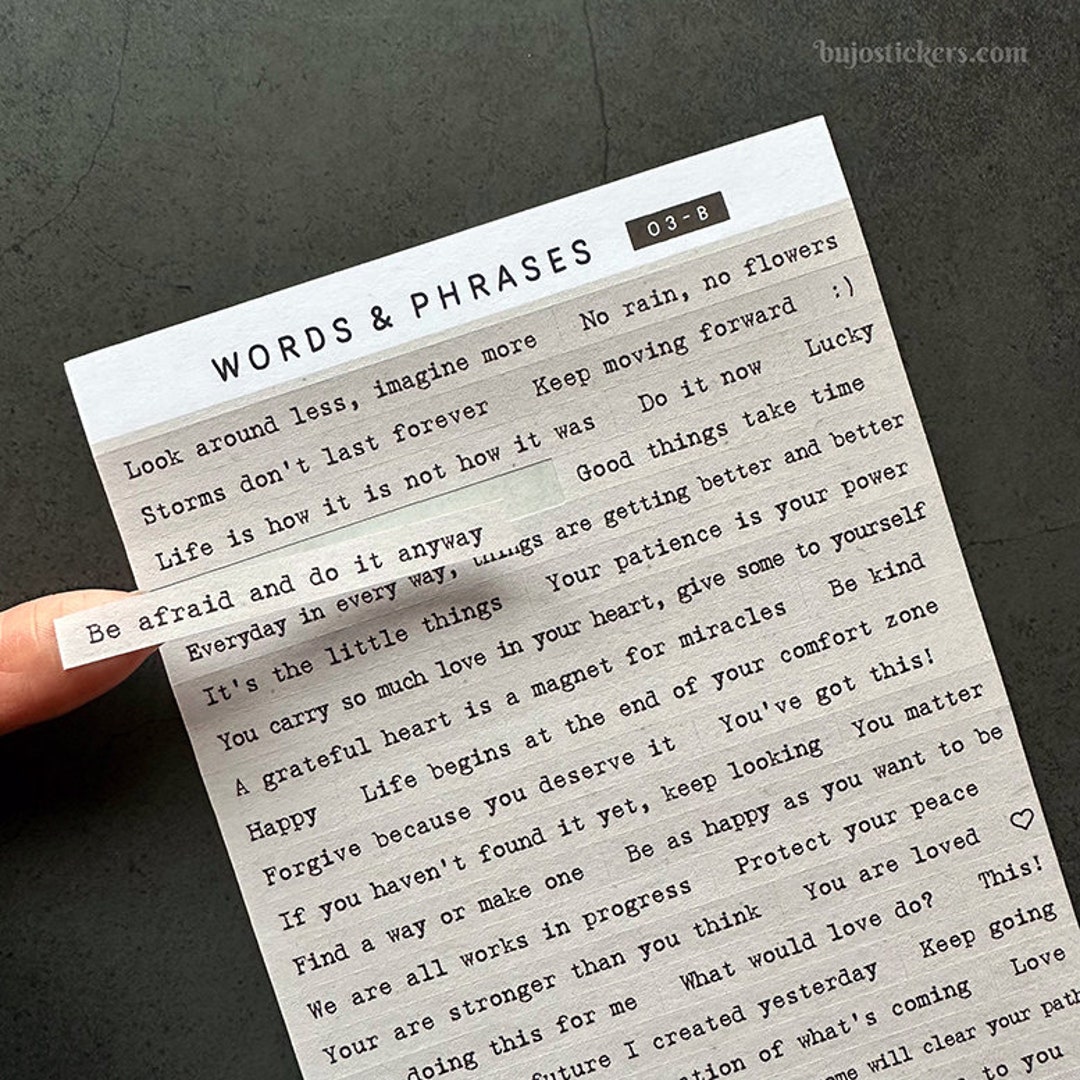 bujostickers.com
WORDS & PHRASES 03-B
Look around less, imagine more No rain, no flowers
Storms don't last forever Keep moving forward :)
Life is how it is not how it was Do it now Lucky
Good things take time
Be afraid and do it anyway
Everyday in every way, things are getting better and better
It's the little things Your patience is your power
You carry so much love in your heart, give some to yourself
A grateful heart is a magnet for miracles Be kind
Happy Life begins at the end of your comfort zone
Forgive because you deserve it You've got this!
If you haven't found it yet, keep looking You matter
Find a way or make one Be as happy as you want to be
We are all works in progress Protect your peace ♡
Your are stronger than you think You are loved
doing this for me What would love do? This!
future I created yesterday Keep going
of what's coming Love
will clear your path
to you